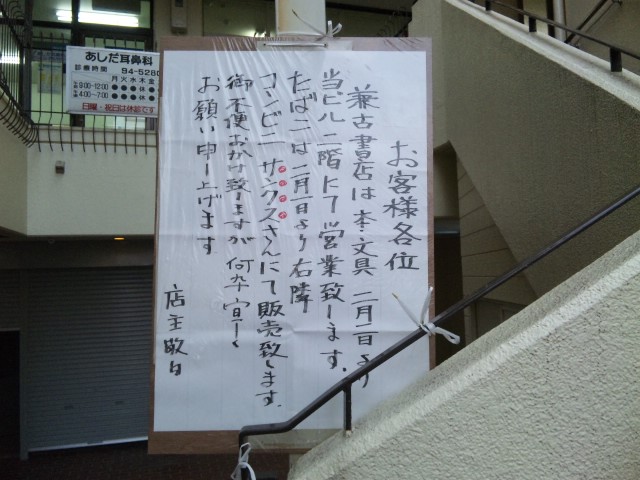 あしだ耳鼻科
診療時間 94-5280
月火水木金
9:00-12:00 ●●●休●
4:00-7:00 ●●●休●
日曜・祝日は休診です
お客様各位
兼古書店は本・文具 二月二日より
当ビル二階にて営業致します。
たばこは二月一日より右隣
コンビニ サンクスさんにて販売致します。
御不便おかけ致しますが何卒宜しく
お願い申し上げます
店主敬白